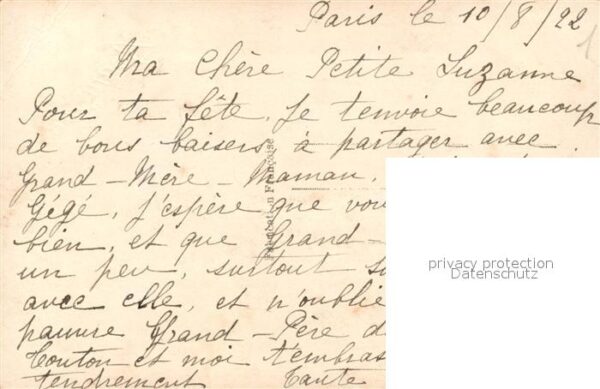 Paris le 10/8/22
Ma Chère Petite Suzanne
Pour ta fête, je tenvoie beaucoup
de bons baisers à partager avec
Grand-Mère-Maman,
Gégé, j'espère que vou
bien, et que Grand-
un peu, surtout s
avec elle, et n'oublie
pauvre Grand-Père d
Tonton et moi t'embras
tendrement Tante
Fabrication Française
privacy protection
Datenschutz